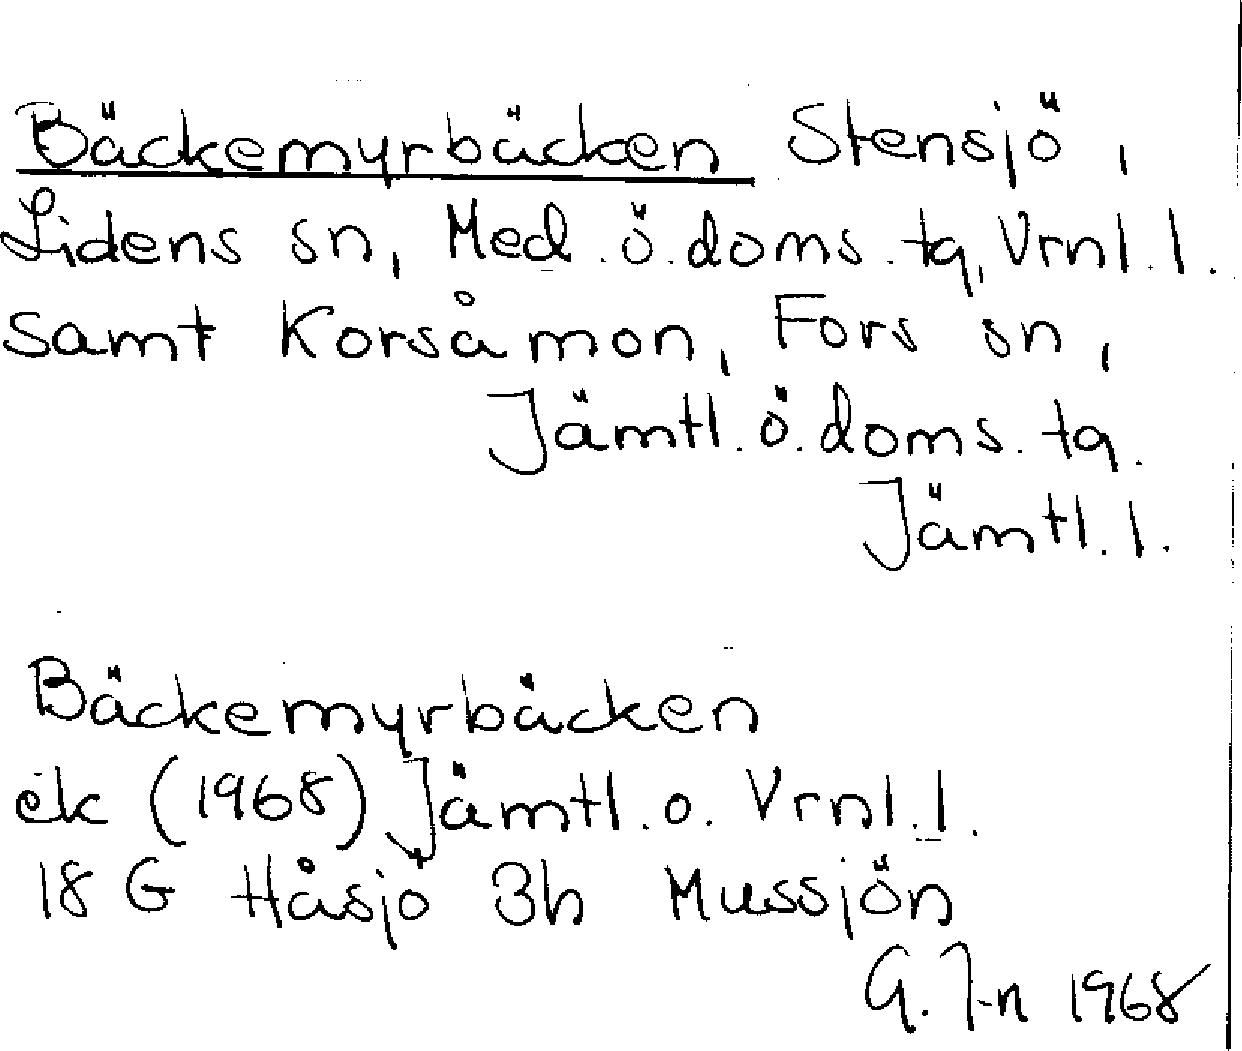 Bäckemyrbäcken Stensjö,
Lidens sn, Med. ö. doms. tg, Vrnl. l.
samt Korsåmon, Fors sn,
Jämtl. ö. doms. tg.
Jämtl. l.
Bäckemyrbäcken
ek (1968) Jämtl. o. Vrnl. l.
18 G Håsjö 3h Mussjön
G. J-n 1968